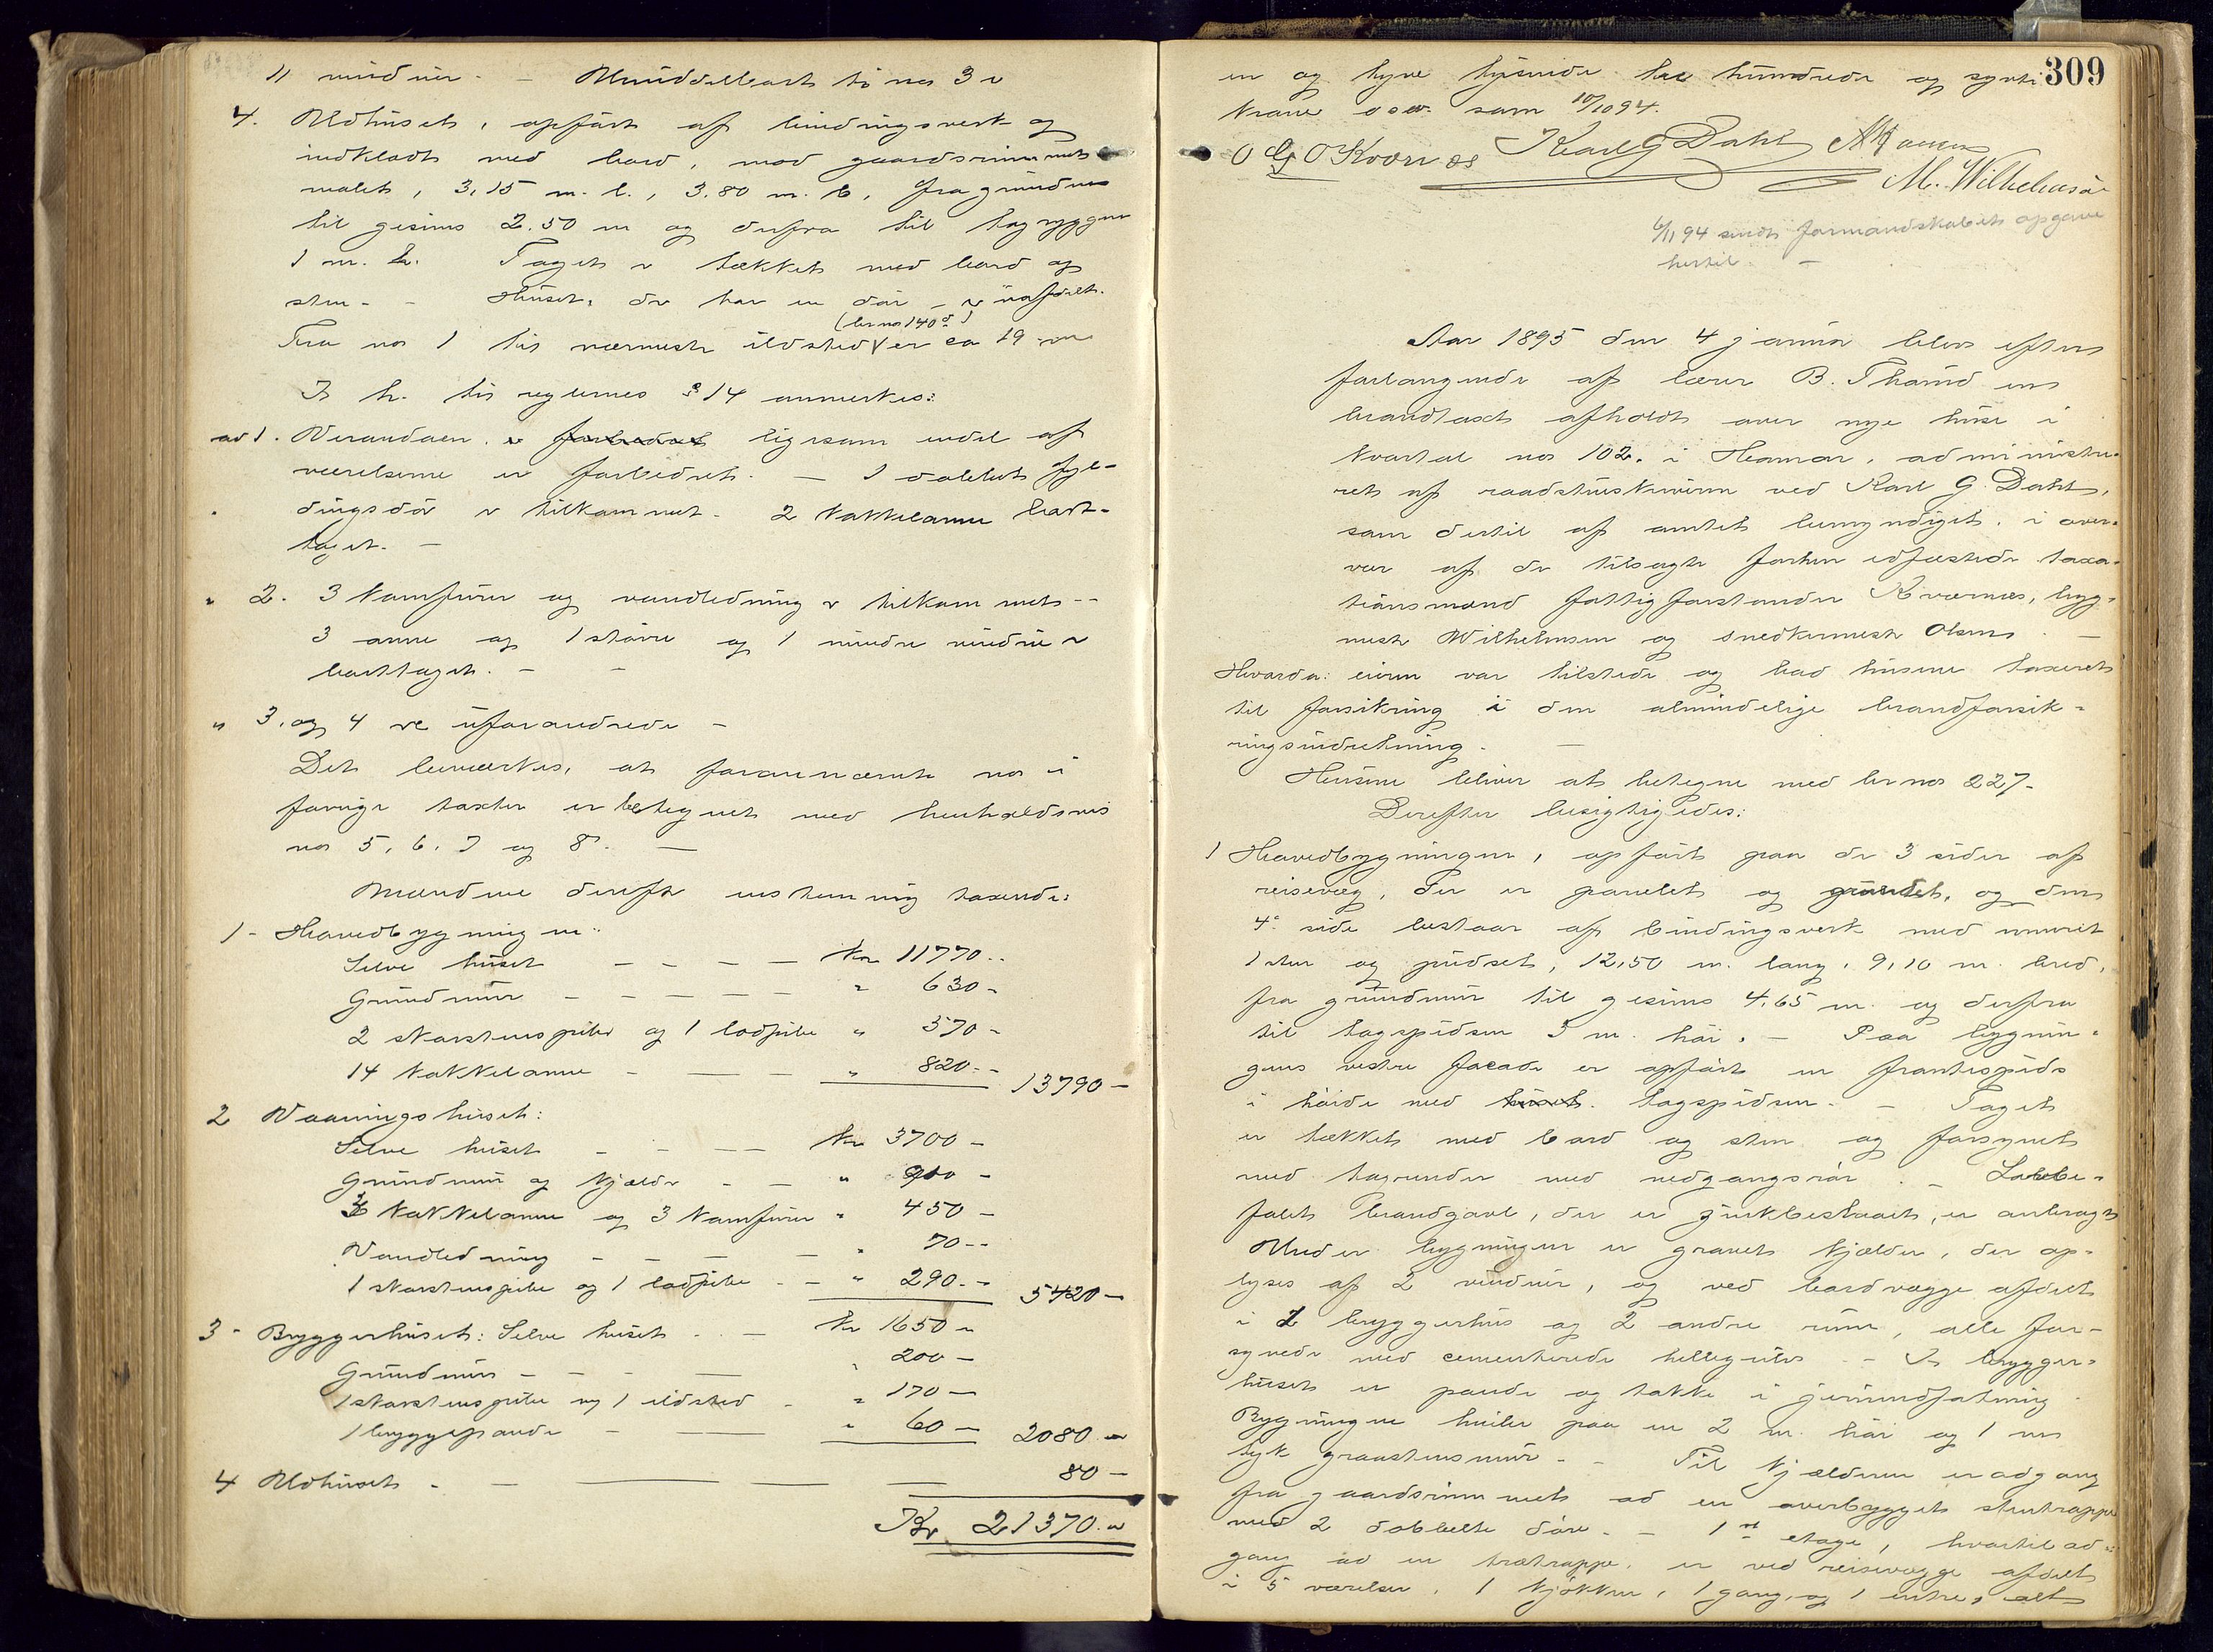 11 vinduer. — Umiddelbart til no 3 er
4. Udhuset, opført af bindingsverk og
indklædt med bord, mod gaardsrummet
malet, 3,15 m. l., 3.80 m. b, fra grunden
til gesims 2.50 m og derfra til tagryggen
1 m. h. Taget er tækket med bord og
sten. — Huset, der har en dør — er uafdelt.
(br no 140 d)
Fra no 1 til nærmeste ildsted er ca 19 m
I h. til reglernes § 14 anmerkes:
ad 1. Verandaen er forbedret ligesom endel af
værelserne er forbedret. — 1 dobbelt fyl-
dingsdør er tilkommet. 2 kakkelovne bort-
taget. —
" 2. 3 komfurer og vandledning er tilkommet —
3 ovne og 1 større og 1 mindre vindue er
borttaget. —
" 3. og 4 er uforandrede —
Det bemærkes, at foranævnte no i
forrige taxter er betegnet med henholdsvis
no 5, 6, 7 og 8. —
Mændene derefter enstemmig taxerede:
1 - Hovedbygningen:
Selve huset — — — — Kr 11770..
Grundmur — — — — — " 630 -
2 skorstenspiber og 1 lodpibe " 570 -
14 kakkelovne — — — " 820.- 13790 —
2 Vaaningshuset:
Selve huset — — — Kr 3700 —
Grundmur og kjælder — — " 900 —
6 kakkelovne og 3 komfurer " 450 —
Vandledning — — — — " 70 --
1 skorstenspibe og 1 lodpibe — " 290.— 5420 —
3 - Bryggerhuset: Selve huset — Kr 1650 -
Grundmur — — — " 200 —
1 skorstenspibe og 1 ildsted — " 170 —
1 bryggepande — — " 60 — 2080 —
4 Udhuset — — — — — 80 —
Kr 21370.-
309
en og tyve tusinde tre hundrede og sytti
kroner osv. som 10/10 94.
O G O Kværnæs Karl G Dahl
M. Wilhelmsen
6/11 94 sendt formandskabets opgave
hertil. —
Aar 1895 den 4 januar blev efter
forlangende af lærer B. Thamd en
brandtaxt afholdt over nye huse i
kvartal no 102. i Hamar, administre-
ret af raadstueskriveren ved Karl G. Dahl,
som dertil af amtet bemyndiget, i over-
vær af de tilsagte forhen edfæstede taxa-
tionsmænd fattigforstander Kværnæs, byg-
mester Wilhelmsen og snedkermester Olsen. —
Hvorda: eieren var tilstede og bad husene taxeret
til forsikring i den almindelige brandforsik-
ringsindretning. —
Husene bliver at betegne med br no 227-
Derefter besigtigedes:
1 Hovedbygningen, opført paa de 3 sider af
reisevæg, der er panelet og grundet, og den
4e side bestaar af bindingsverk med muret
1 sten og pudset, 12,50 m. lang, 9,10 m. bred,
fra grundmur til gesims 4.65 m. og derfra
til tagspidsen 3 m. høi. — Paa bygnin-
gens vestre facade er opført en frontespids
i høide med huset. tagspidsen. — Taget
er tækket med bord og sten og forsynet
med tagrender med nedgangsrør. —
falt brandgavl, der er zinkbeslaaet, er anbragt
Under bygningen er gravet kjælder, der op-
lyses af 2 vinduer, og ved bordvægge afdelt
i 1 bryggerhus og 2 andre rum, alle for-
synede med cementerede hellegulv — I brygger-
huset er pande og takke i jernindfatning.
Bygningen hviler paa en 2 m. høi og 1 m
tyk graastensmur. — Til kjælderen er adgang
fra gaardsrummet ad en overbygget stentrappe
med 2 dobbelte døre. — 1ste etage, hvortil ad-
gang ad en trætrappe, er ved reisevægge afdelt
i 5 værelser, 1 kjøkken, 1 gang, og 1 entre, alt